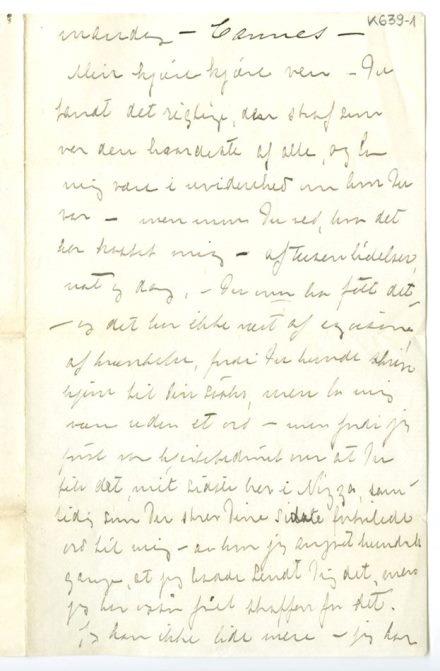 K639-1
mandag – Cannes –
Min kjære kjære ven – Du
fandt det rigtige, den straf som
var den haardeste af alle, og la
mig være i uvidenhed om hvor Du
var – men mon Du ved, hva det
har kostet mig – af tusen lidelser,
nat og dag. – Du maa ha følt det
– og det har ikke vært af
af krænkelse, fordi Du kunde skrive
hjem til din søster, men la mig
være uden et ord – men fordi jeg
først var hjertebedrøvet over at Du
fik det, mit sidste brev i Nizza, sam-
tidig som Du skrev Dine sidste
ord til mig – aa hvor jeg angret hundrede
gange, at jeg havde sendt Dig det, men
jeg har ogsaa faat straffen for det.
Jeg kan ikke lide mere – jeg har